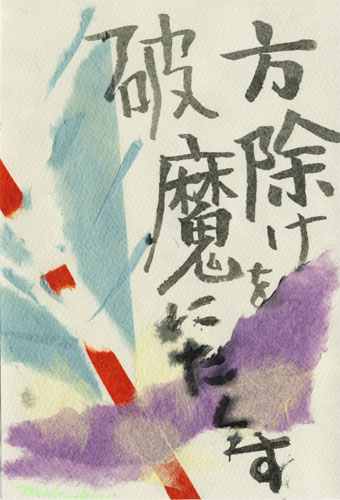 方除けを
破魔にたくす